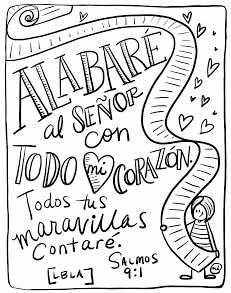 ALABARÉ
al SEÑOR
con
TODO mi CORAZÓN.
Todos tus
maravillas
contaré.
SALMOS
[LBLA] 9:1